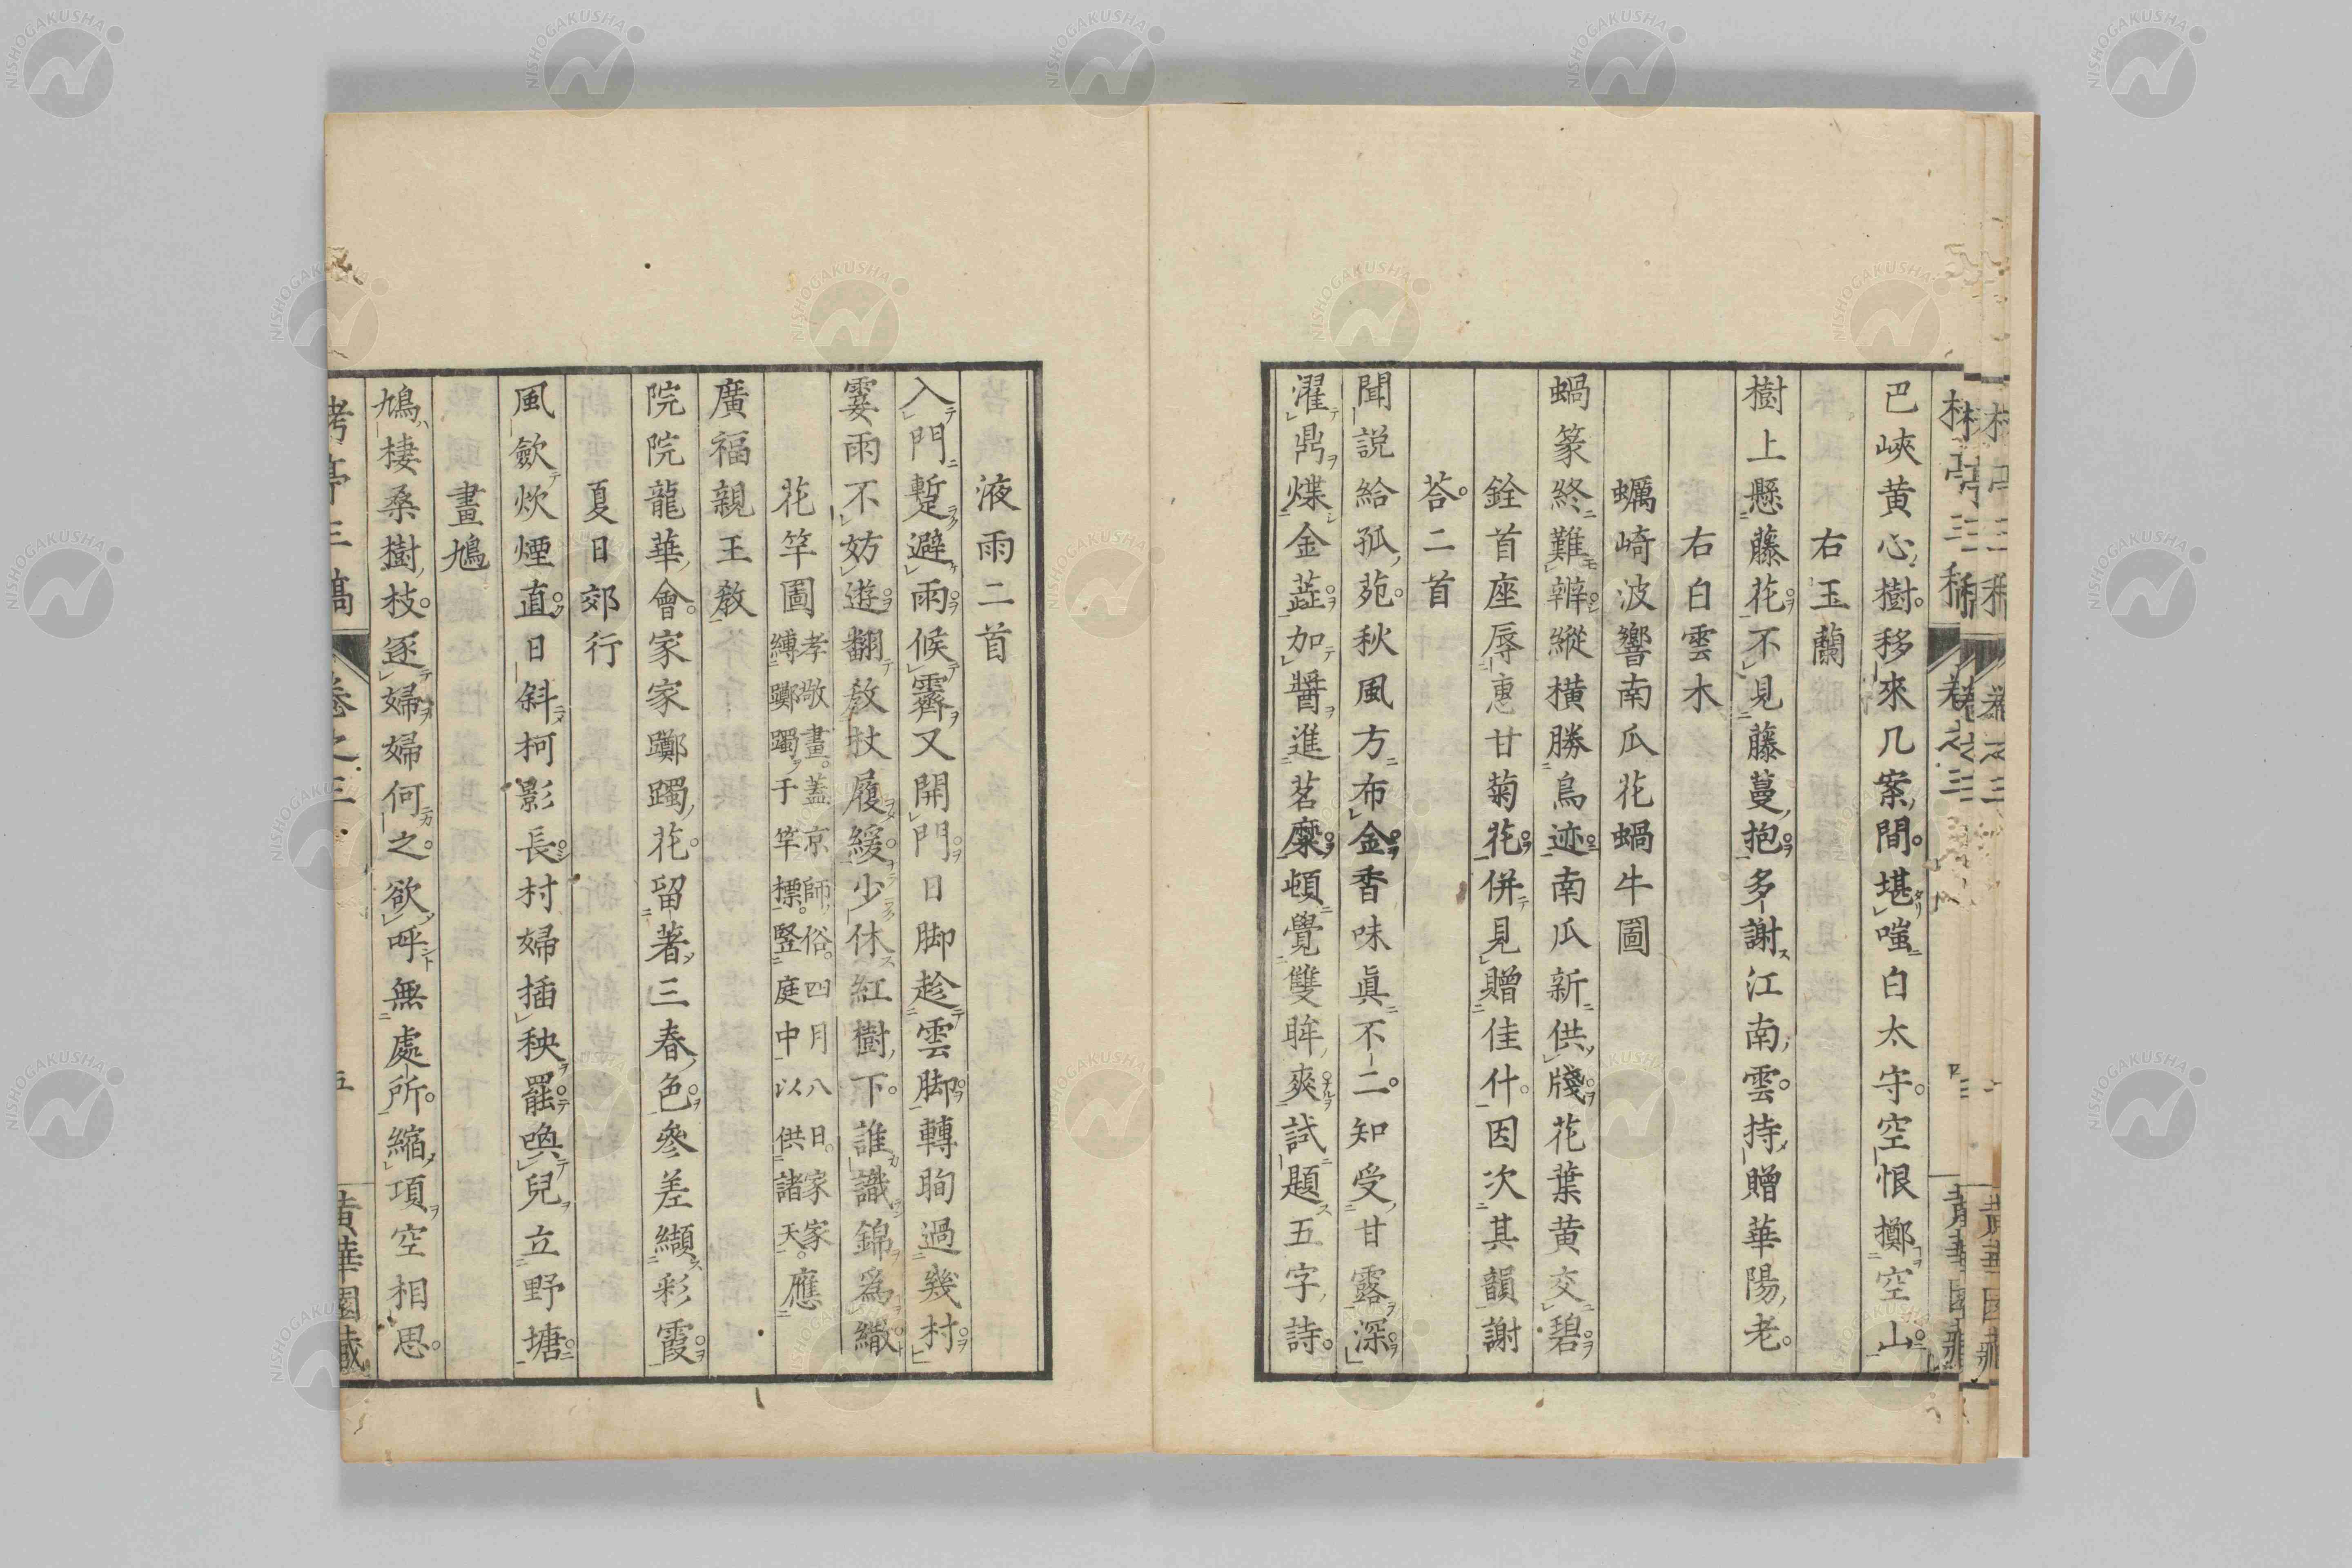 巴峽黄心樹移來几案間堪嗤白太守空恨擲空山
右玉蘭
樹上懸藤花不見藤蔓抱多謝江南雲持贈華陽老
右白雲木
蠣崎波響南瓜花蝸牛圖
蝸篆終難辧縱横勝鳥迹南瓜新供牋花葉黄交碧
銓首座辱惠甘菊花併見贈佳什因次其韻謝
荅二首
聞説給孤苑秋風方布金香味眞不二知受甘露深
濯鼎煠金蕋加醤進茗糜頓覺雙眸爽試題五字詩
液雨二首
入門蹔避雨候霽又開門日脚趁雲脚轉眴過幾村
霎雨不妨遊翻敎杖履緩少休紅樹下誰識錦爲繖
花竿圖 孝敬畫蓋京師俗四月八日家家
縛躑躅于竿標竪庭中以供諸天 應
廣福親王敎
院院龍華會家家躑躅花留著三春色參差纈彩霞
夏日郊行
風歛炊煙直日斜柯影長村婦插秧罷喚兒立野塘
畫鳩
鳩棲桑樹枝逐婦婦何之欲呼無處所縮項空相思
亭三稿 卷之三 五 黄華園藏
NISHOGAKUSHA